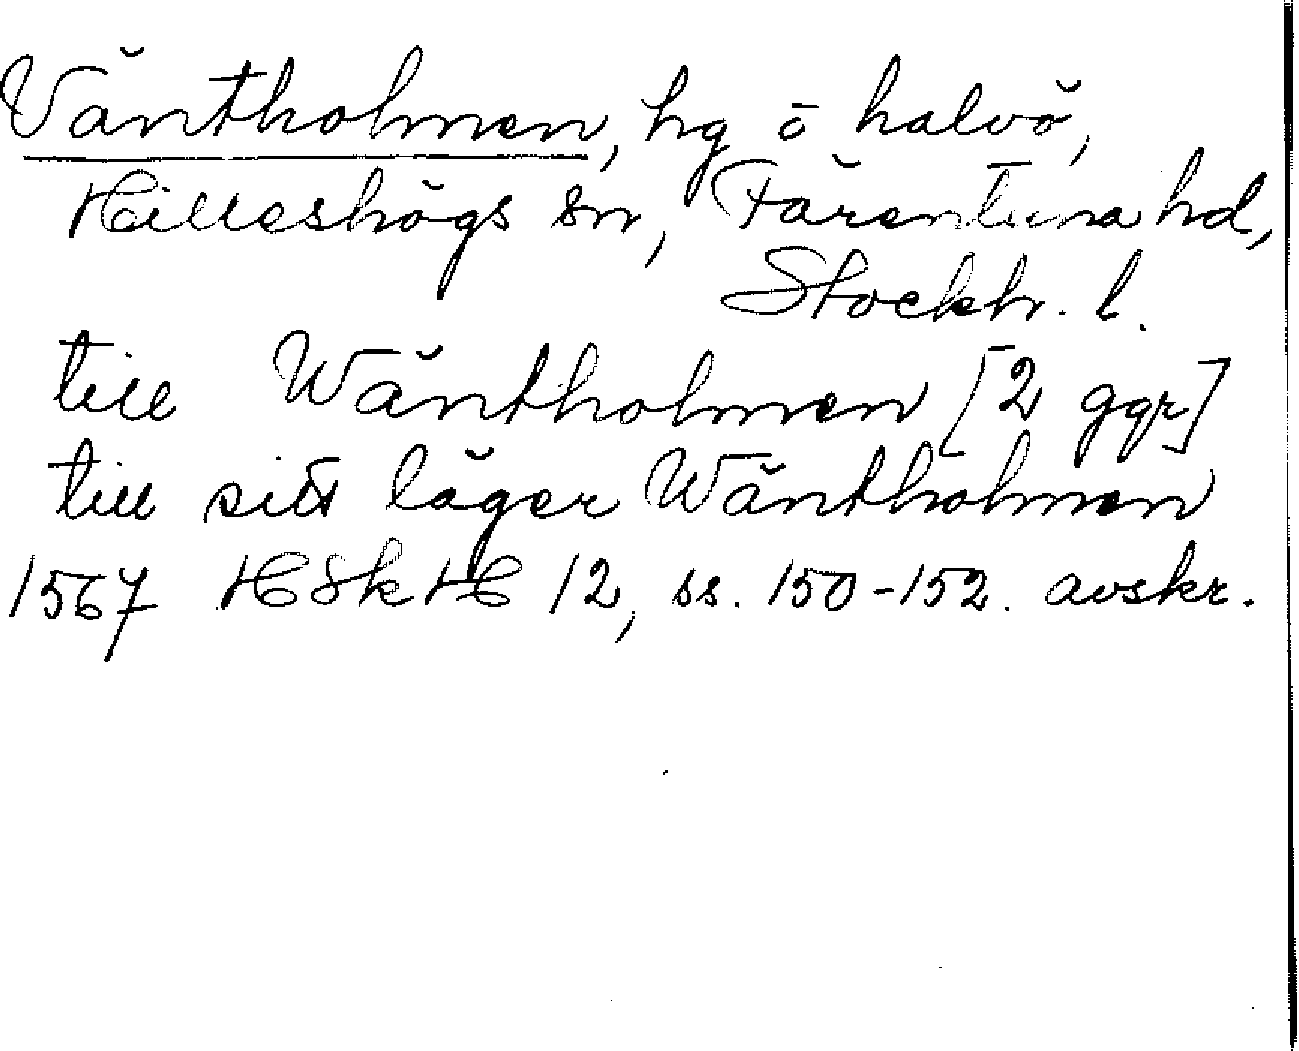 Väntholmen, hg ō halvö,
Hilleshögs sn, Färentuna hd,
Stockh. l.
till Wäntholmen [2 ggr]
till sitt läger Wäntholmen
1567 HSkH 12, ss. 150-152. avskr.